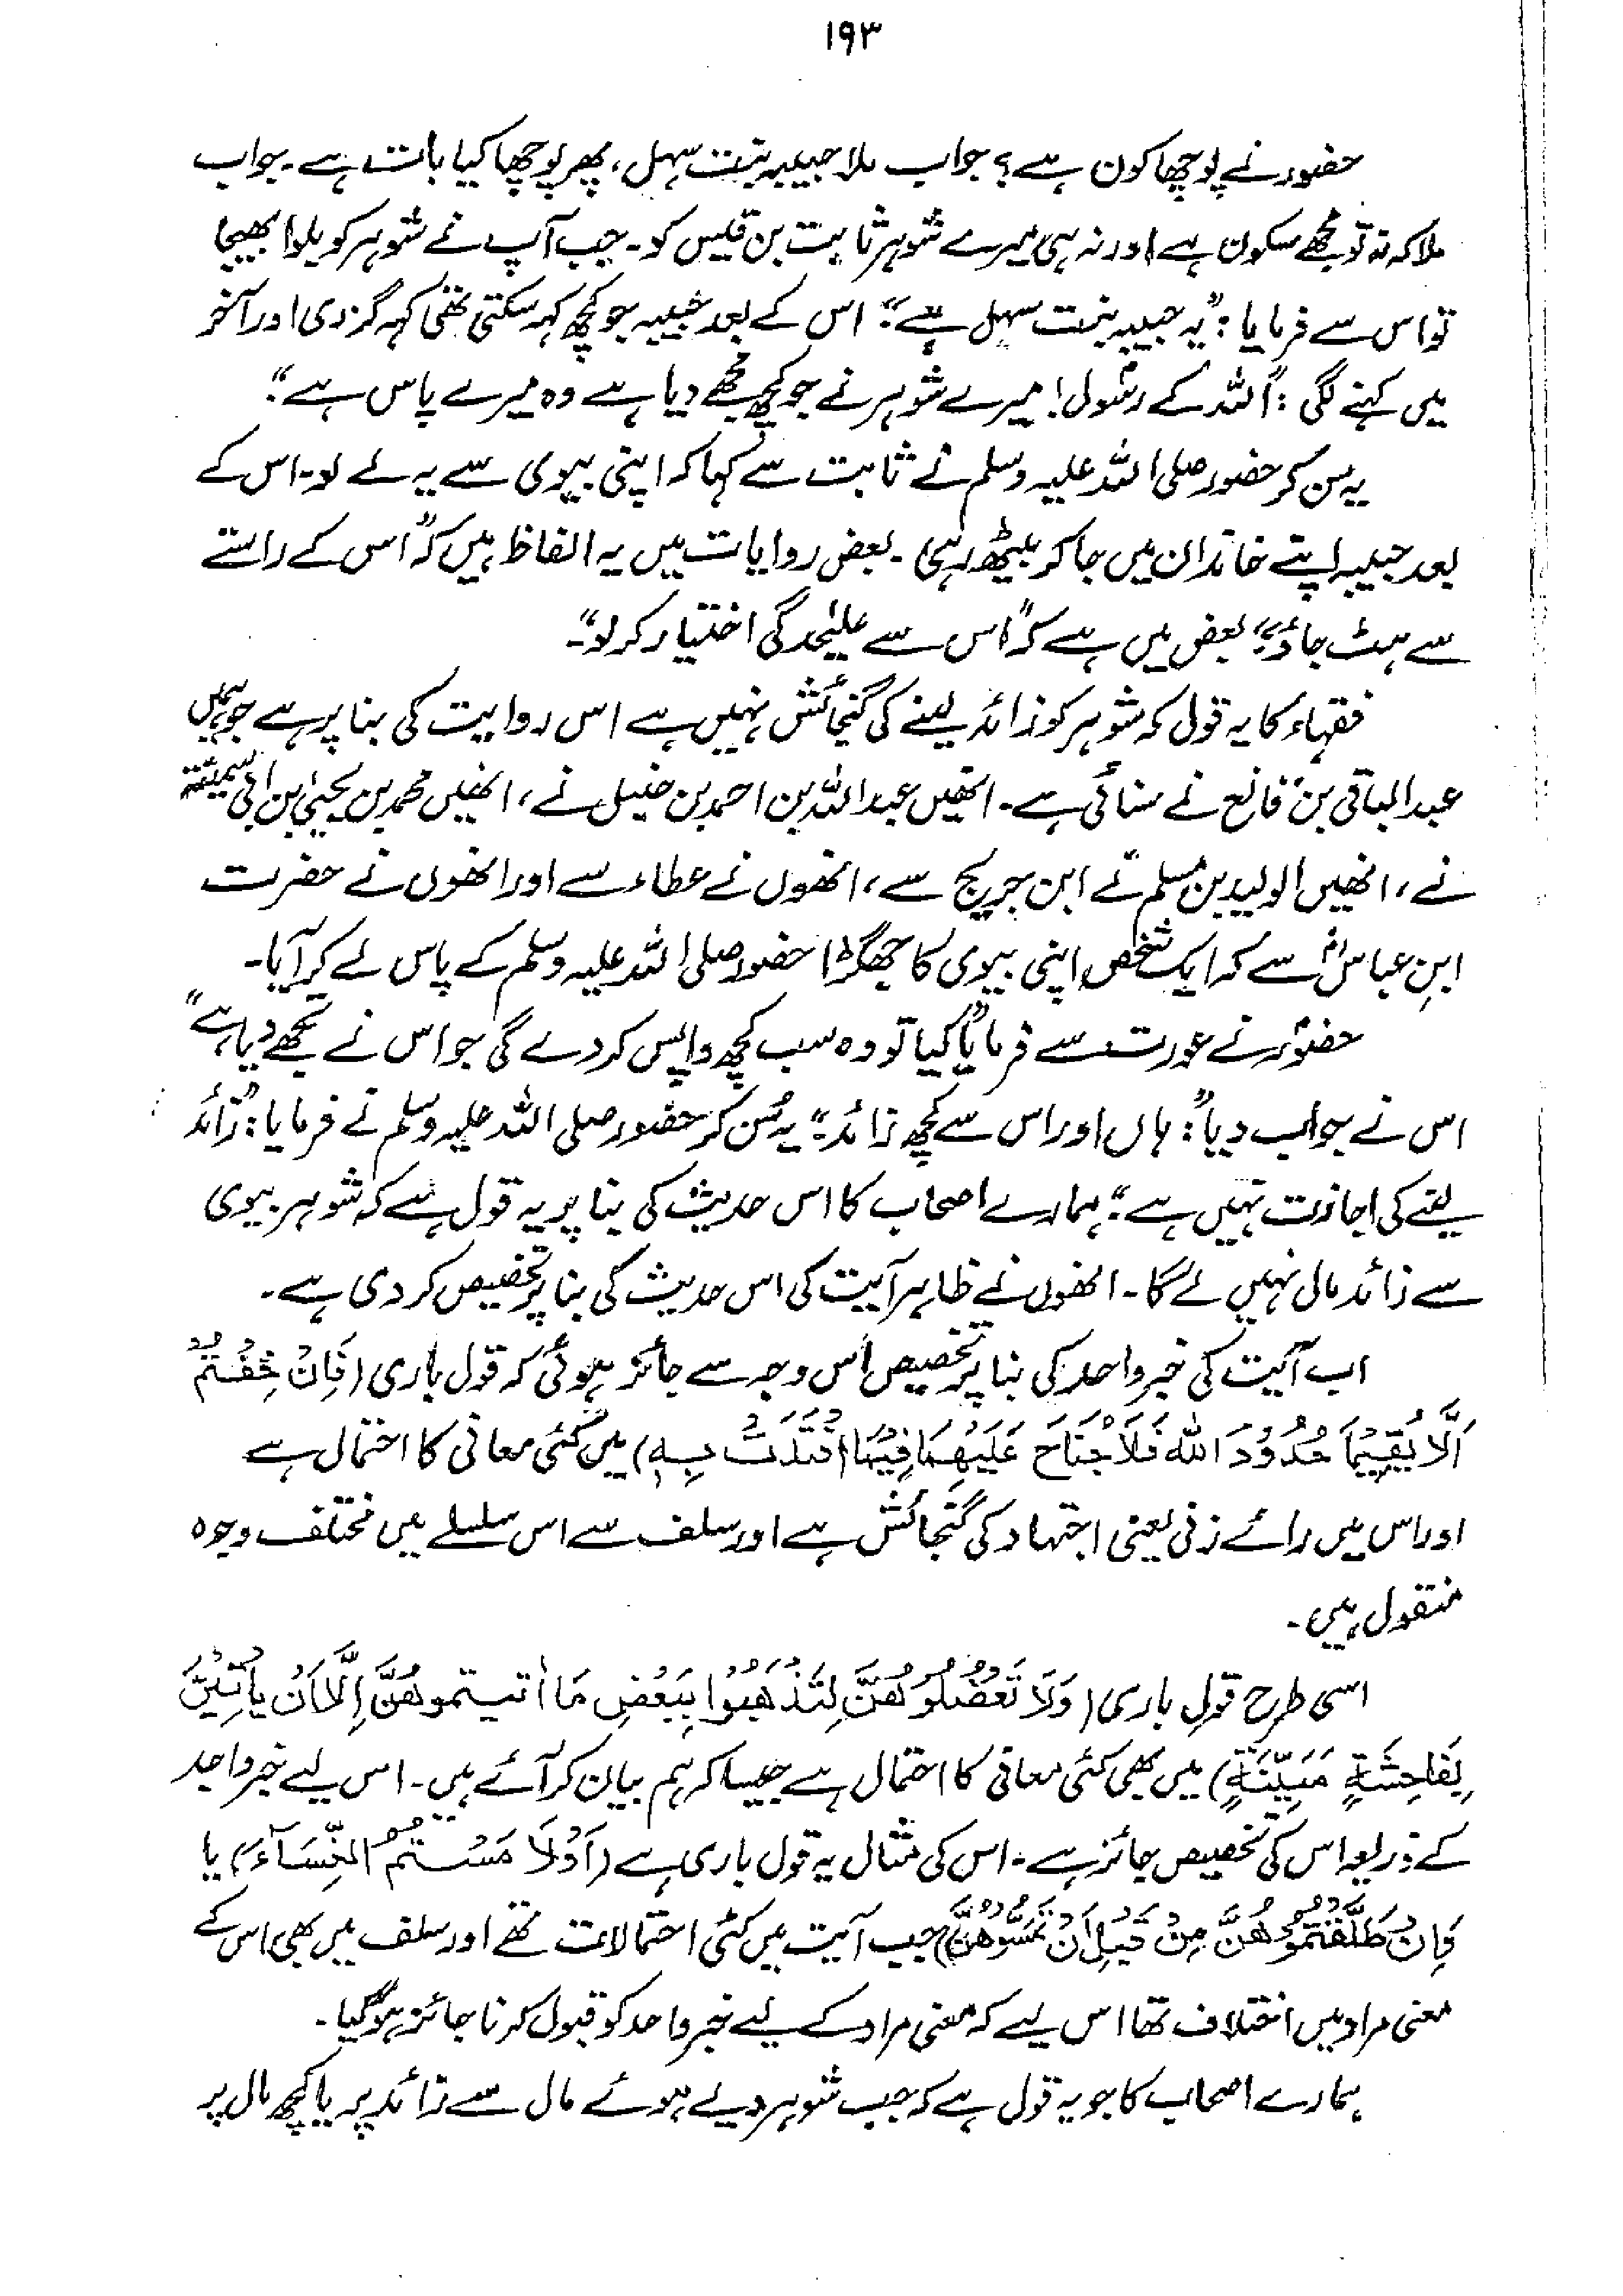 ۱۹۳
حضور نے پوچھا کون ہے؟ جواب ملا حبیبہ بنت سہل، پھر پوچھا کیا بات ہے۔ جواب
ملا کہ نہ تو مجھے سکون ہے اور نہ ہی میرے شوہر ثابت بن قیس کو۔ جب آپ نے شوہر کو بلوا بھیجا
تو اس سے فرمایا: "یہ حبیبہ بنت سہل ہے"؛ اس کے بعد حبیبہ جو کچھ کہہ سکتی تھی کہہ گزری اور آخر
میں کہنے لگی: "اللہ کے رسول! میرے شوہر نے جو کچھ مجھے دیا ہے وہ میرے پاس ہے"؛
یہ سن کر حضور صلی اللہ علیہ وسلم نے ثابت سے کہا کہ اپنی بیوی سے یہ لے لو۔ اس کے
بعد حبیبہ اپنے خاندان میں جا کر بیٹھ رہی۔ بعض روایات میں یہ الفاظ ہیں کہ "اس کے راستے
سے ہٹ جاؤ"؛ بعض میں ہے کہ "اس سے علیٰحدگی اختیار کر لو"۔
فقہاء کا یہ قول کہ شوہر کو زائد لینے کی گنجائش نہیں ہے اس روایت کی بنا پر ہے جو ہمیں
عبدالباقی بن قانع نے سنائی ہے۔ انھیں عبداللہ بن احمد بن حنبل نے، انھیں محمد بن یحییٰ بن ابی سمینہ
نے، انھیں الولید بن مسلم نے ابن جریج سے، انھوں نے عطاء سے اور انھوں نے حضرت
ابنِ عباسؓ سے کہ ایک شخص اپنی بیوی کا جھگڑا حضور صلی اللہ علیہ وسلم کے پاس لے کر آیا۔
حضورؐ نے عورت سے فرمایا "کیا تو وہ سب کچھ واپس کر دے گی جو اس نے تجھے دیا ہے"
اس نے جواب دیا: "ہاں اور اس سے کچھ زائد"؛ یہ سُن کر حضور صلی اللہ علیہ وسلم نے فرمایا: "زائد
لینے کی اجازت نہیں ہے"؛ ہمارے اصحاب کا اس حدیث کی بنا پر یہ قول ہے کہ شوہر بیوی
سے زائد مال نہیں لے گا۔ انھوں نے ظاہر آیت کی اس حدیث کی بنا پر تخصیص کر دی ہے۔
اب آیت کی خبر واحد کی بنا پر تخصیص اس وجہ سے جائز ہوئی کہ قول باری (فَاِنْ خِفْتُمْ
اَلَّا یُقِیْمَا حُدُوْدَ اللہ فَلَا جُنَاحَ عَلَیْھِمَا فِیْمَا افْتَدَتْ بِہٖ) میں کئی معانی کا احتمال ہے
اور اس میں رائے زنی یعنی اجتہاد کی گنجائش ہے اور سلف سے اس سلسلے میں مختلف وجوہ
منقول ہیں۔
اسی طرح قولِ باری (وَلَا تَعْضُلُوْھُنَّ لِتَذْھَبُوْا بِبَعْضِ مَا اٰتیتموھُنَّ اِلَّا اَنْ یَاْتِیْنَ
بِفَاحِشَۃٍ مُّبَیِّنَۃٍ) میں بھی کئی معانی کا احتمال ہے جیسا کہ ہم بیان کر آئے ہیں۔ اس لیے خبر واحد
کے ذریعہ اس کی تخصیص جائز ہے۔ اس کی مثال یہ قول باری ہے (اَوْ لَا مَسْتُمُ النِّسَآءَ) یا
وَاِنْ طَلَّقْتُمُوْھُنَّ مِنْ قَبْلِ اَنْ تَمَسُّوْھُنَّ) جب آیت میں کئی احتمالات تھے اور سلف میں بھی اس کے
معنی مراد میں اختلاف تھا اس لیے کہ معنی مراد کے لیے خبر واحد کو قبول کرنا جائز ہو گیا۔
ہمارے اصحاب کا جو یہ قول ہے کہ جب شوہر دیے ہوئے مال سے زائد پر یا کچھ مال پر